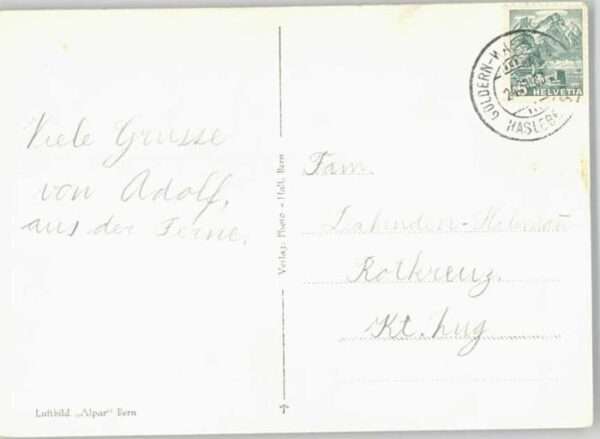 Viele Grüsse
von Adolf,
aus der Ferne.
Fam.
Rotkreuz.
Kt. Zug
Verlag: Photo-Hall, Bern
Luftbild „Alpar" Bern
GOLDERN-
HASLEB
HELVETIA
5